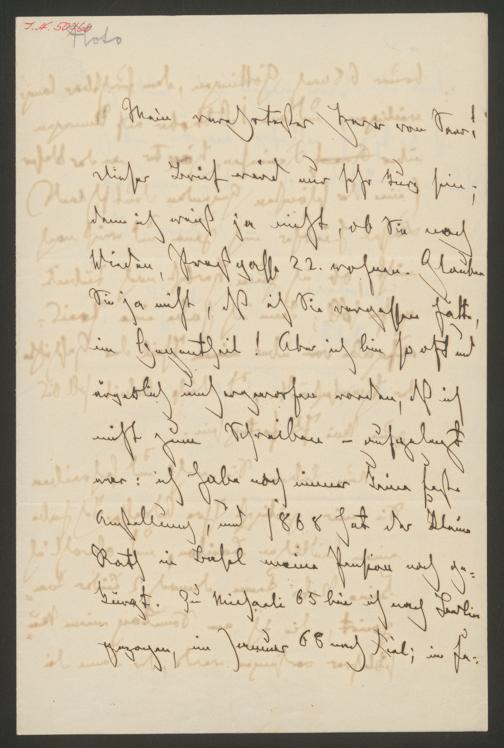 J. N. 50460
Floto
Mein verehrtester Herr von Saar!
dieser Brief wird nur sehr kurz sein;
denn ich weiß ja nicht, ob Sie noch
Wieden, 22. wohnen. Glauben
Sie ja nicht, daß ich Sie vergessen hätte,
im Gegentheil! Aber ich bin so oft und
umhergeworfen worden, daß ich
nicht zum Schreiben – aufgelegt
war: ich habe noch immer keine feste
Anstellung, und 1868 hat der kleine
Rath in Basel meine Pension noch ge-
kürzt. Zu Michaeli 65 bin ich nach Berlin
gezogen, im Januar 68 nach Kiel; im